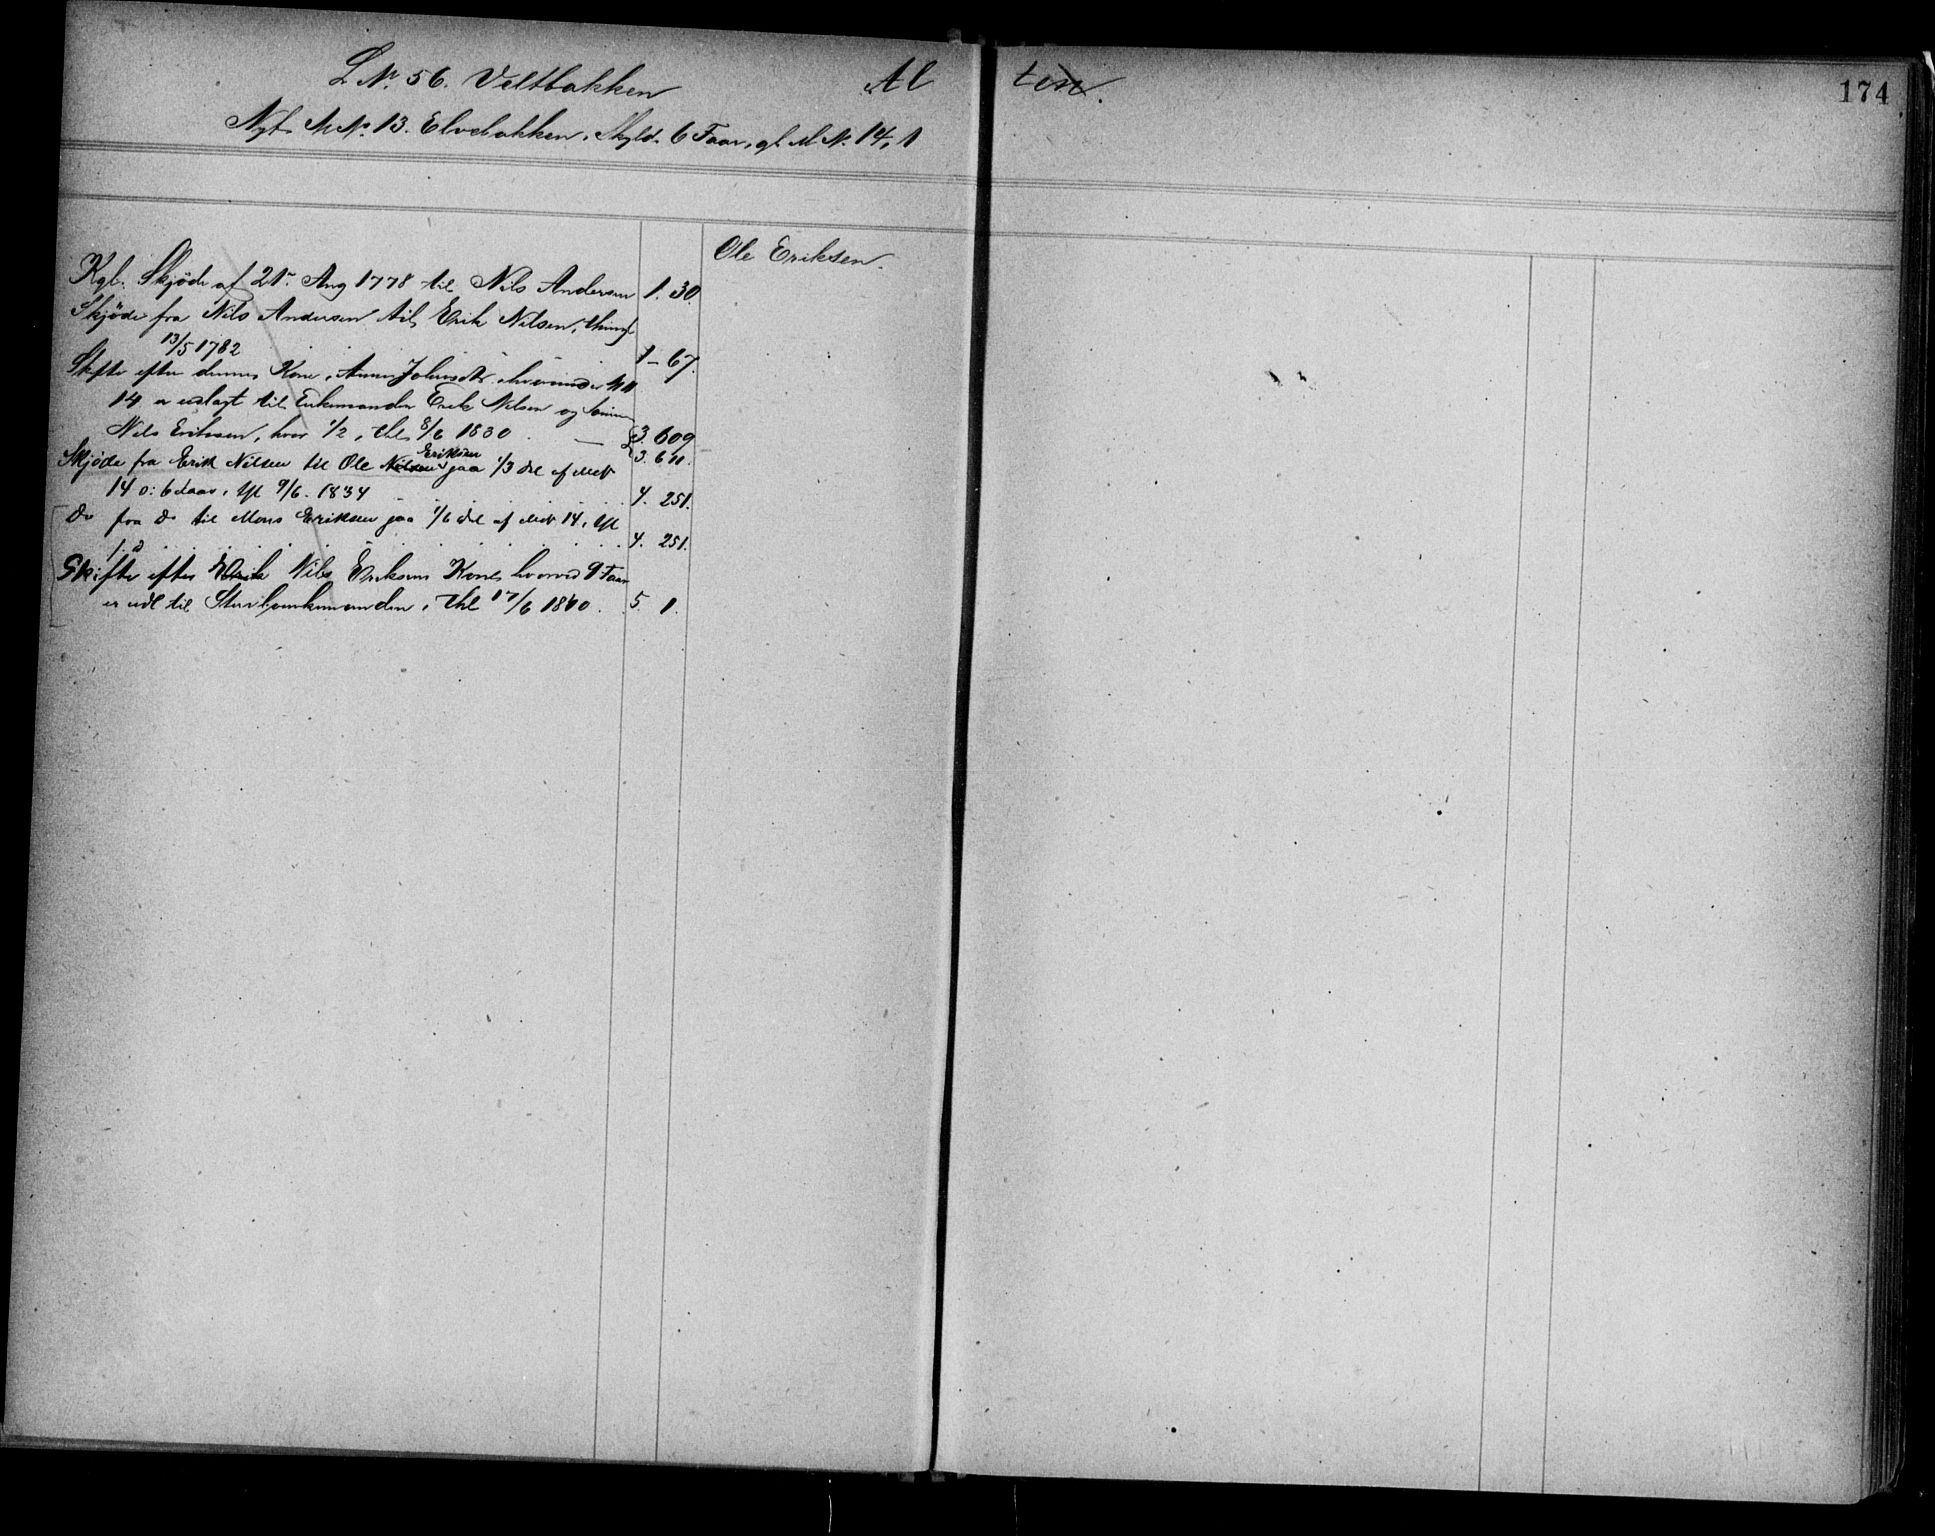 L.Nr. 56. Veltbakken Al ten. 174
Nyt M.Nr. 13. Elvebakken, Skyld 6 Faar, gl. M.Nr. 14, 1
Ole Eriksen.
Kgl. Skjøde af 21. Aug 1778 til Nils Andersen 1. 30.
Skjøde fra Nils Andersen til Erik Nilsen,
13/5 1782 1 – 67.
Skifte efter dennes Kone, Anne hvorunder
14 er udlagt til Enkemanden Erik Nilsen og Sønnen
Nils Eriksen, hver 1/2, thl. 8/6 1830. — 3. 609
3. 611.
Skjøde fra Erik Nilsen til Ole Nilsen Eriksen paa 1/3 del af MNr
14 o: 6 Faar, thl 9/6. 1834 4. 251.
Do fra do til Mons Eriksen paa 1/6 del af MNr 14, thl
s. d. 4. 251.
Skifte efter Erik Nils Eriksens Kone hvorved 9 Faar
er udl til Stervboenkemanden, thl 17/6 1840. 5. 1.